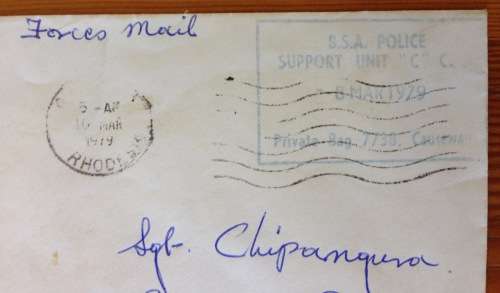 Forces Mail
B.S.A. POLICE
SUPPORT UNIT "C" C.
- 8 MAR 1979
Private Bag 7738, Causeway
5 - AM
10 MAR
1979
RHODESIA
Sgt. Chipangura